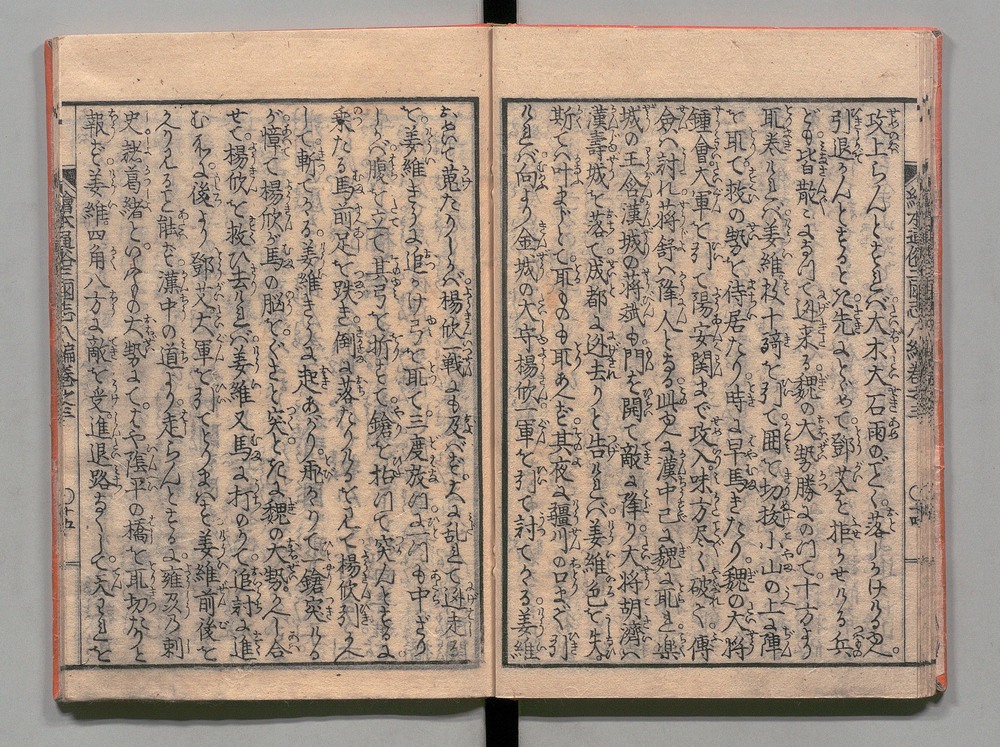 攻上らんとすれバ大木大石雨のごとく落しかけけるゆへ
引退かんとするとき先よとゞめて鄧艾を拒がせける兵
ども皆散〻になつて迯来る魏の大勢勝よのつて十方より
取巻けれバ姜維数十騎を引て囲を切抜小山の上よ陣
を取て救の勢を待居たり時よ早馬きたり魏の大将
鍾會大軍を引て陽安関まで攻入味方尽く破て傅
僉ハ討れ蒋舒ハ降人となる此ゆへよ漢中已よ魏よ取れ楽
城の王含漢城の蒋斌も門を開て敵よ降り大将胡濟ハ
漢壽城を落て成都よ迯去りと告けれバ姜維色を失
斯てハ叶まじとて取ものも取あへず其夜彊川の口まで引
けれバ向より金城の太守楊欣一軍を引て討てかゝる姜維
おめいて蒐たりしかバ楊欣一戦よも及バず大よ乱れて迯走る
を姜維きうよ追かけ弓を取て三度放つよ一つも中ざり
しかバ腹を立て其弓を折すて鎗を拈つて突んとするよ
乗たる馬前足を跌き倒よ落たりけるを見て楊欣引かへ
して斬てかゝる姜維きうよ起あがり飛かゝつて鎗突ける
が慥て楊欣が馬の脳をぐさと突ときよ魏の大勢入り合
せて楊欣を救ひ去れバ姜維又馬よ打のつて追討よ進
むおりふし後より鄧艾大軍を引てとりまハせば姜維前後を
入りけると能ず漢中の道より走らんとするよ雍州の刺
史諸葛緒といふもの大勢よてはや陰平の橋を取切たりと
報ず姜維四角八方よ敵を受進退路なくして天われを